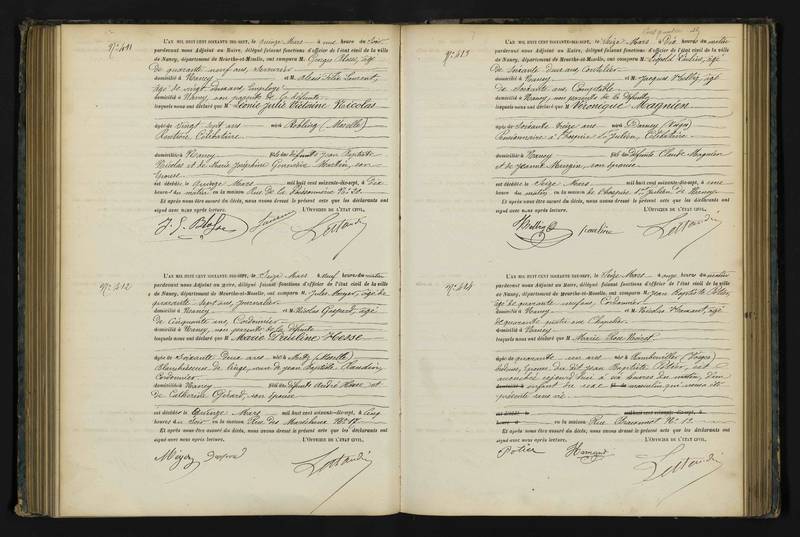 Nº 411
L'AN MIL HUIT CENT SOIXANTE-DIX-SEPT, le quinze Mars à une heure du soir
pardevant nous Adjoint au Maire, délégué faisant fonctions d'officier de l'état civil de la ville
de Nancy, département de Meurthe-et-Moselle, ont comparu M. Georges Blaise, âgé
de quarante neuf ans, serrurier
domicilié à Nancy et M. Laurent,
âgé de vingt deux ans, Employé
domicilié à Nancy, non parents de la défunte
lesquels nous ont déclaré que Léonie Julie Victoire Nicolas
âgée de vingt sept ans née à (Moselle)
Célibataire
domiciliée à Nancy fille des défunts Jean Baptiste
Nicolas et de Marie Joséphine Geneviève Martin, son
épouse
est décédée le quinze Mars mil huit cent soixante-dix-sept, à Dix
heures du matin en la maison Rue de la Poissonnerie Nº 22.
Et après nous être assuré du décès, nous avons dressé le présent acte que les déclarants ont
signé avec nous après lecture. L'OFFICIER DE L'ÉTAT CIVIL,
Nº 412
L'AN MIL HUIT CENT SOIXANTE-DIX-SEPT, le seize Mars à neuf heures du matin
pardevant nous Adjoint au maire, délégué faisant fonctions d'officier de l'état civil de la ville
de Nancy, département de Meurthe-et-Moselle, ont comparu M. Jules Meyer, âgé de
quarante sept ans, journalier
domicilié à Nancy et M. Nicolas Gaspard, âgé
de Cinquante ans, Cordonnier
domicilié à Nancy, non parents de la défunte
lesquels nous ont déclaré que Marie Pauline Hesse
âgée de soixante Deux ans née à Metz (Moselle)
Blanchisseuse de linge, veuve de Jean Baptiste
Cordonnier
domiciliée à Nancy fille des défunts André Hesse et
de Catherine Gérard, son épouse
est décédée le Quinze Mars mil huit cent soixante-dix-sept, à cinq
heures du soir en la maison Rue des Maréchaux Nº 17.
Et après nous être assuré du décès, nous avons dressé le présent acte que les déclarants ont
signé avec nous après lecture. L'OFFICIER DE L'ÉTAT CIVIL,
Nº 413
L'AN MIL HUIT CENT SOIXANTE-DIX-SEPT, le Seize Mars à Dix heures du matin
pardevant nous Adjoint au Maire, délégué faisant fonctions d'officier de l'état civil de la ville
de Nancy, département de Meurthe-et-Moselle, ont comparu M. Léopold Paulin, âgé
de soixante deux ans,
domicilié à Nancy et M. Jacques Helbig, âgé
de soixante ans, Comptable
domicilié à Nancy, non parents de la défunte
lesquels nous ont déclaré que Véronique Magnien
âgée de soixante seize ans née à Darney (Vosges)
Pensionnaire à l'hospice St Julien, Célibataire
domiciliée à Nancy fille des défunts Claude Magnien
et de Jeanne Mengin, son épouse
est décédée le Seize Mars mil huit cent soixante-dix-sept, à une
heure du matin, en la maison de l'hospice St Julien de
Et après nous être assuré du décès, nous avons dressé le présent acte que les déclarants ont
signé avec nous après lecture. L'OFFICIER DE L'ÉTAT CIVIL,
Helbig
Nº 414
L'AN MIL HUIT CENT SOIXANTE-DIX-SEPT, le Seize Mars à onze heures du matin
pardevant nous Adjoint au Maire, délégué faisant fonctions d'officier de l'état civil de la ville
de Nancy, département de Meurthe-et-Moselle, ont comparu M. Jean Baptiste Potier,
âgé de quarante neuf ans, Cordonnier
domicilié à Nancy et M. Nicolas Hamant, âgé
de quarante quatre ans, Chapelier
domicilié à Nancy
lesquels nous ont déclaré que Marie Rose
âgée de quarante un ans née à Rambervillers (Vosges)
épouse du dit Jean Baptiste Potier, est
accouchée aujourd'hui à six heures du matin, d'un
enfant du sexe masculin, qui nous a été
présenté sans vie.
en la maison Rue Nº 12.
Et après nous être assuré du décès, nous avons dressé le présent acte que les déclarants ont
signé avec nous après lecture. L'OFFICIER DE L'ÉTAT CIVIL,
Potier Hamant